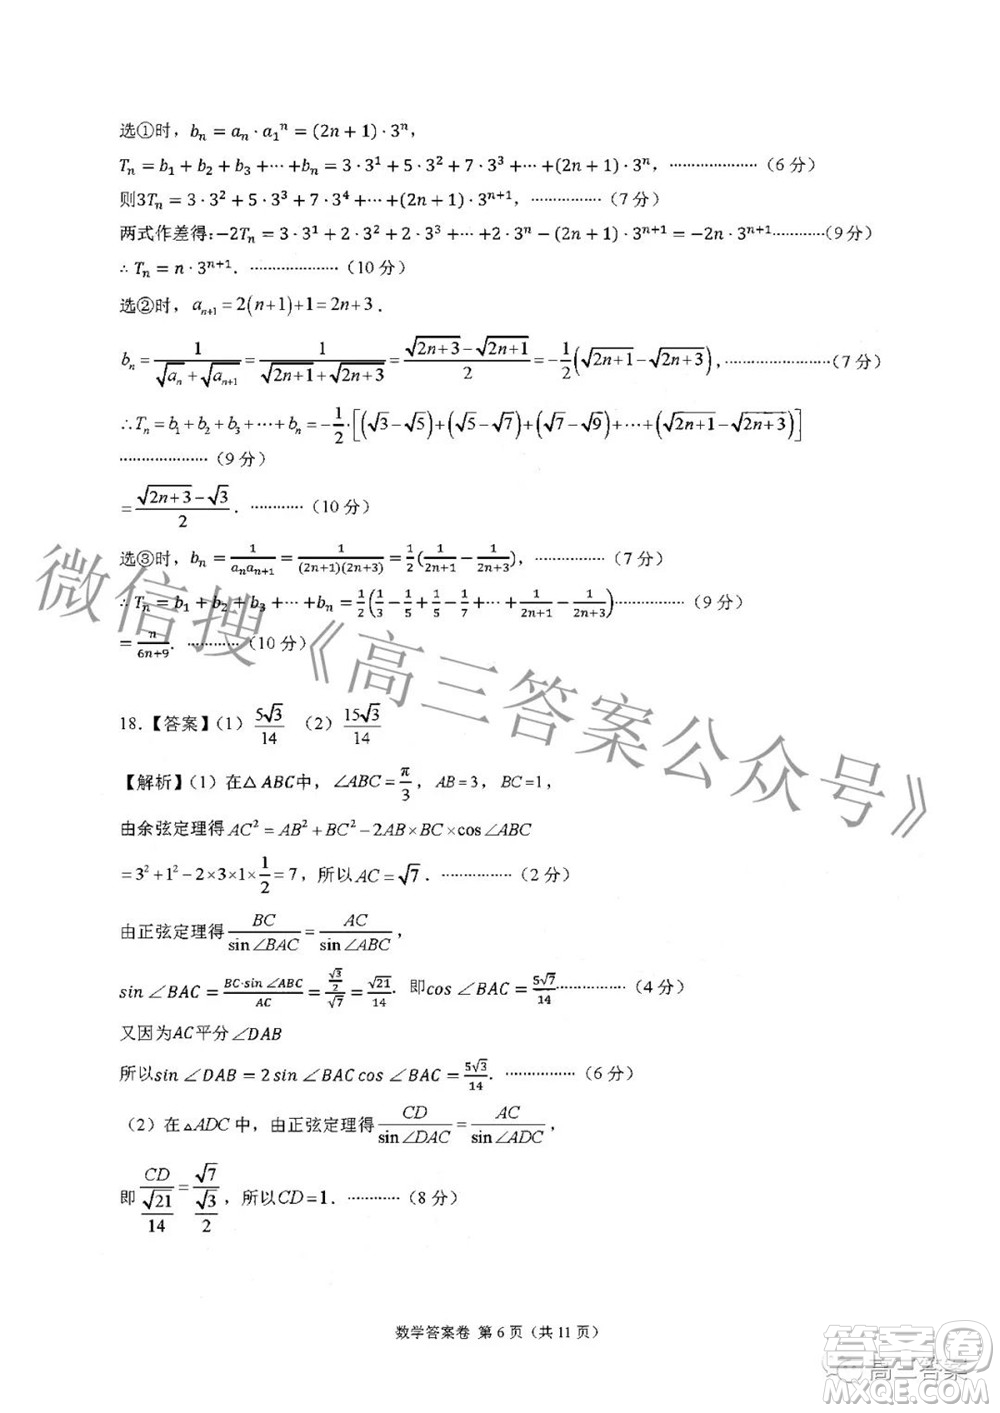 选①时，bₙ = aₙ · a₁ⁿ = (2n + 1) · 3ⁿ，
Tₙ = b₁ + b₂ + b₃ + ⋯ + bₙ = 3 · 3¹ + 5 · 3² + 7 · 3³ + ⋯ + (2n + 1) · 3ⁿ，………………（6 分）
则3Tₙ = 3 · 3² + 5 · 3³ + 7 · 3⁴ + ⋯ + (2n + 1) · 3ⁿ⁺¹，………………（7 分）
两式作差得：−2Tₙ = 3 · 3¹ + 2 · 3² + 2 · 3³ + ⋯ + 2 · 3ⁿ − (2n + 1) · 3ⁿ⁺¹ = −2n · 3ⁿ⁺¹…………（9 分）
∴ Tₙ = n · 3ⁿ⁺¹．…………………（10 分）
选②时，aₙ₊₁ = 2(n+1)+1 = 2n+3．
bₙ = 1/(√aₙ + √aₙ₊₁) = 1/(√(2n+1) + √(2n+3)) = (√(2n+3) − √(2n+1))/2 = −1/2(√(2n+1) − √(2n+3))，……………………（7 分）
∴Tₙ = b₁ + b₂ + b₃ + ⋯ + bₙ = −1/2·[(√3−√5)+(√5−√7)+(√7−√9)+⋯+(√(2n+1)−√(2n+3))]
…………………（9 分）
= (√(2n+3) − √3)/2．…………（10 分）
选③时，bₙ = 1/(aₙaₙ₊₁) = 1/((2n+1)(2n+3)) = 1/2(1/(2n+1) − 1/(2n+3))，………………（7 分）
∴ Tₙ = b₁ + b₂ + b₃ + ⋯ + bₙ = 1/2(1/3 − 1/5 + 1/5 − 1/7 + ⋯ + 1/(2n+1) − 1/(2n+3))………………（9 分）
= n/(6n+9)．…………（10 分）
18．【答案】（1）5√3/14 （2）15√3/14
【解析】（1）在△ABC中，∠ABC = π/3，AB = 3，BC = 1，
由余弦定理得AC² = AB² + BC² − 2AB×BC×cos∠ABC
= 3² + 1² − 2×3×1×1/2 = 7，所以AC = √7．………………（2 分）
由正弦定理得BC/sin∠BAC = AC/sin∠ABC，
sin∠BAC = BC·sin∠ABC/AC = (√3/2)/√7 = √21/14．即cos∠BAC = 5√7/14………………（4 分）
又因为AC平分∠DAB
所以sin∠DAB = 2sin∠BACcos∠BAC = 5√3/14．………………（6 分）
（2）在△ADC中，由正弦定理得CD/sin∠DAC = AC/sin∠ADC，
即CD/(√21/14) = √7/(√3/2)，所以CD = 1．…………（8 分）
数学答案卷 第 6 页（共 11 页）
微信搜《高三答案公众号》
答案卷
高三答案
MXQE.COM